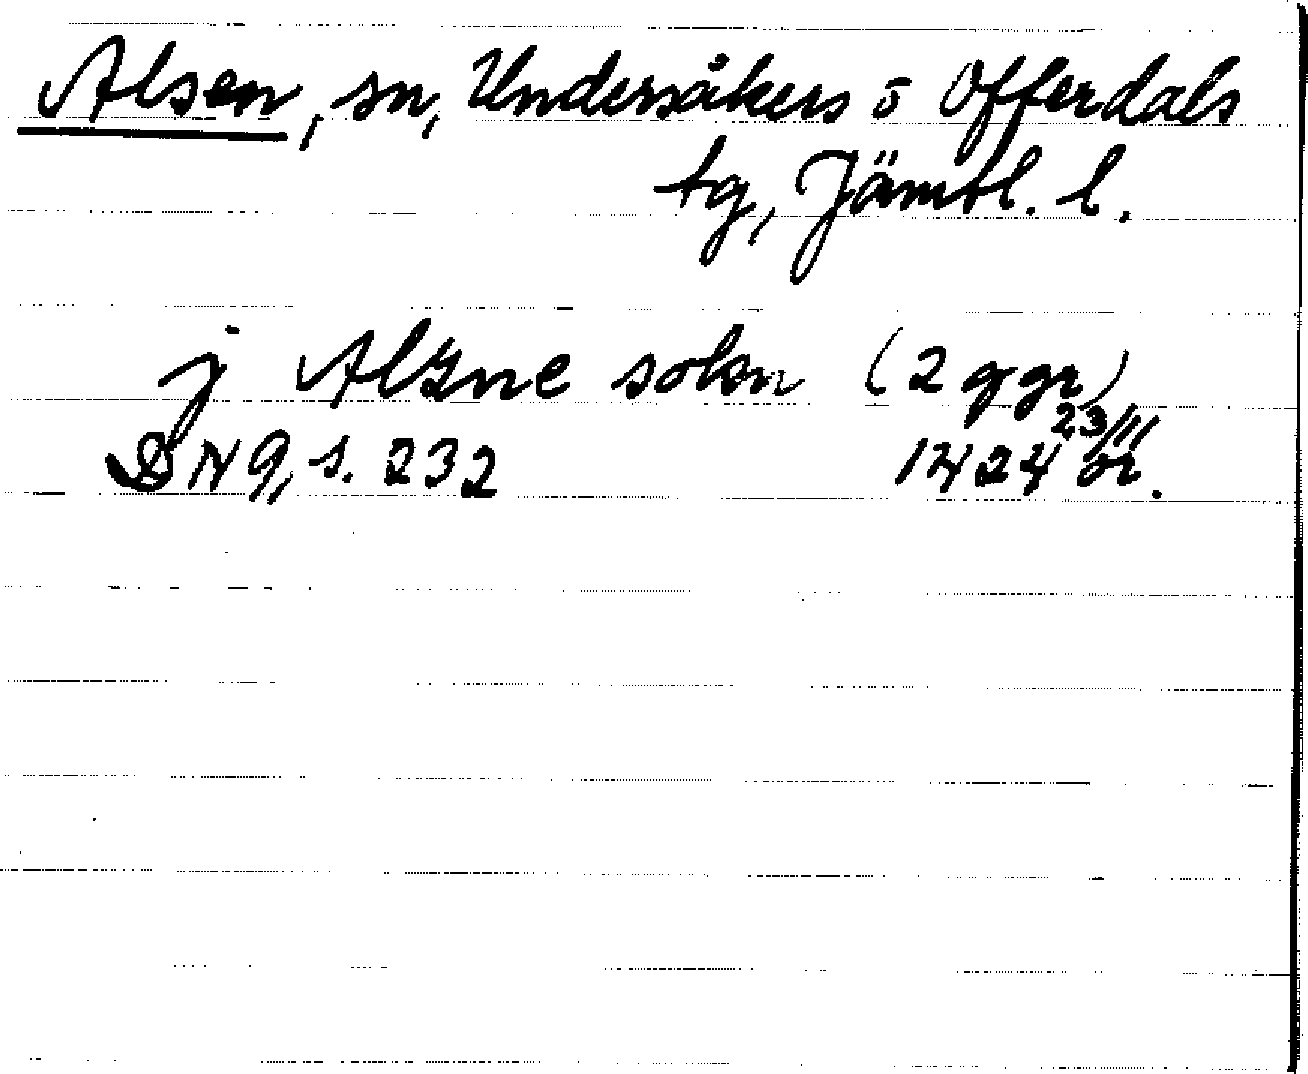 Alsen, sn, Undersåkers o Offerdals
tg, Jämtl. l.
j Alzne sokn (2 ggr)
DN 9, s. 232 1424 23/III or.